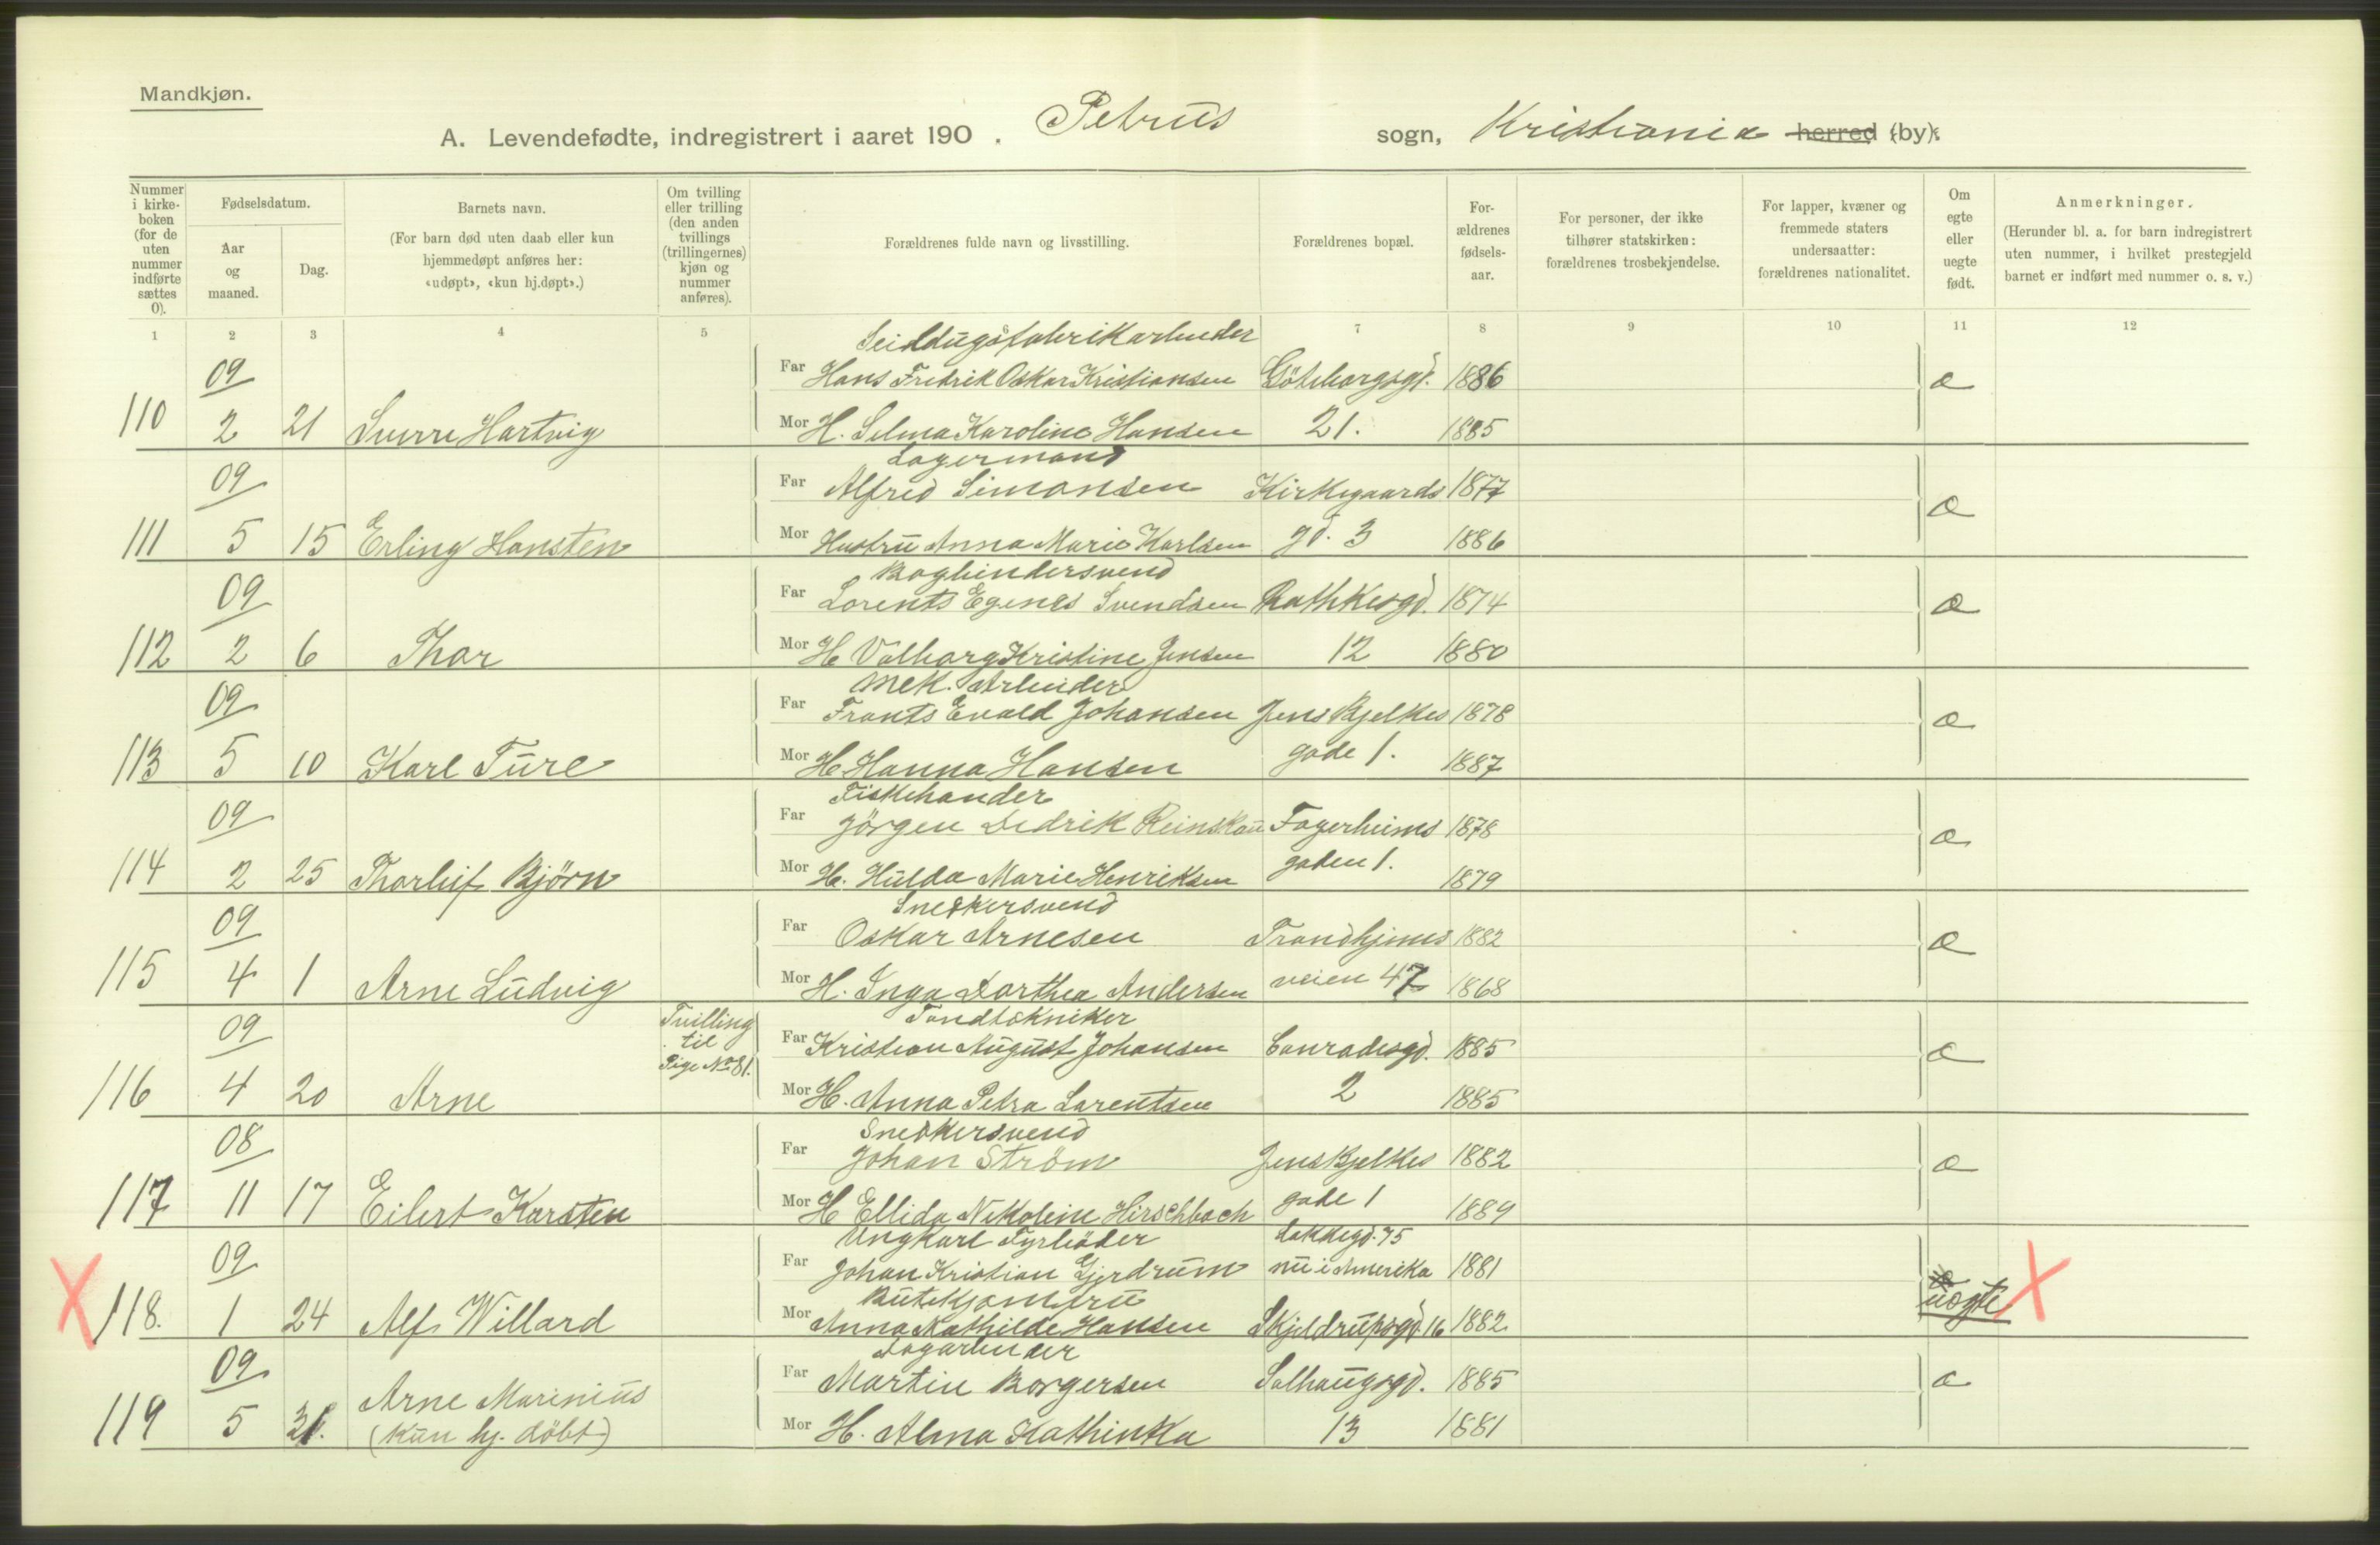 Mandkjøn.
A. Levendefødte, indregistrert i aaret 190 . Petrus sogn, Kristiania herred (by):
Nummer i kirke-boken (for de uten nummer indførte sættes 0).
Fødselsdatum.
Aar og maaned.
Dag.
Barnets navn.
(For barn død uten daab eller kun hjemmedøpt anføres her: «udøpt», «kun hj.døpt».)
Om tvilling eller trilling (den anden tvillings (trillingernes) kjøn og nummer anføres).
Forældrenes fulde navn og livsstilling.
Forældrenes bopæl.
For-ældrenes fødsels-aar.
For personer, der ikke tilhører statskirken: forældrenes trosbekjendelse.
For lapper, kvæner og fremmede staters undersaatter: forældrenes nationalitet.
Om egte eller uegte født.
Anmerkninger.
(Herunder bl. a. for barn indregistrert uten nummer, i hvilket prestegjeld barnet er indført med nummer o. s. v.)
1 2 3 4 5 6 7 8 9 10 11 12
Seildugsfabrikarbeider
09 Far Hans Fredrik Oskar Kristiansen Göteborgsgd. 1886 æ
110 2 21 Sverre Hartvig Mor H. Selma Karoline Hansen 21. 1885
Lagermand
09 Far Alfred Simonsen Kirkegaards 1877 æ
111 5 15 Erling Hansten Mor Hustru Anna Marie Karlsen gd. 3 1886
Bogbindersvend
09 Far Lorents Egenes Svendsen Rathkesgd. 1874 æ
112 2 6 Thor Mor H Valborg Kristine Jensen 12 1880
Mek. Arbeider
09 Far Frants Evald Johansen Jens Bjelkes 1878 æ
113 5 10 Karl Ture Mor H. Hanna Hansen gade 1. 1887
Fiskehander
09 Far Jörgen Dedrik Reinskou Fagerheims 1878 æ
114 2 25 Thorleif Björn Mor H. Hulda Marie Henriksen gaden 1. 1879
Snedkersvend
09 Far Oskar Arnesen Trondhjems 1882 æ
115 4 1 Arne Ludvig Mor H. Inga Dorthea Andersen veien 47 1868
Tvilling til Pige No 81.
Tandtekniker
09 Far Kristian August Johansen Conradisgd. 1885 æ
116 4 20 Arne Mor H. Anna Petra Larentsen 2 1885
Snedkersvend
08 Far Johan Ström Jens Bjelkes 1882 æ
117 11 17 Eilert Karsten Mor H Ellida Nikoleine Hirschbach gade 1 1889
Ungkarl Fyrböder Lakkegd. 75
09 Far Johan Kristian Gjerdrum nu i Amerika 1881
X Butikjomfru uægte X
118. 1 24 Alf Willard Mor Anna Mathilde Hansen Skjeldrupsgd 16 1882
Dagarbeider
09 Far Martin Borgersen Solhaugsgd. 1885 æ
119 5 31. Arne Marinius Mor H. Alma Kathinka 13 1881
(kun hj. döbt)